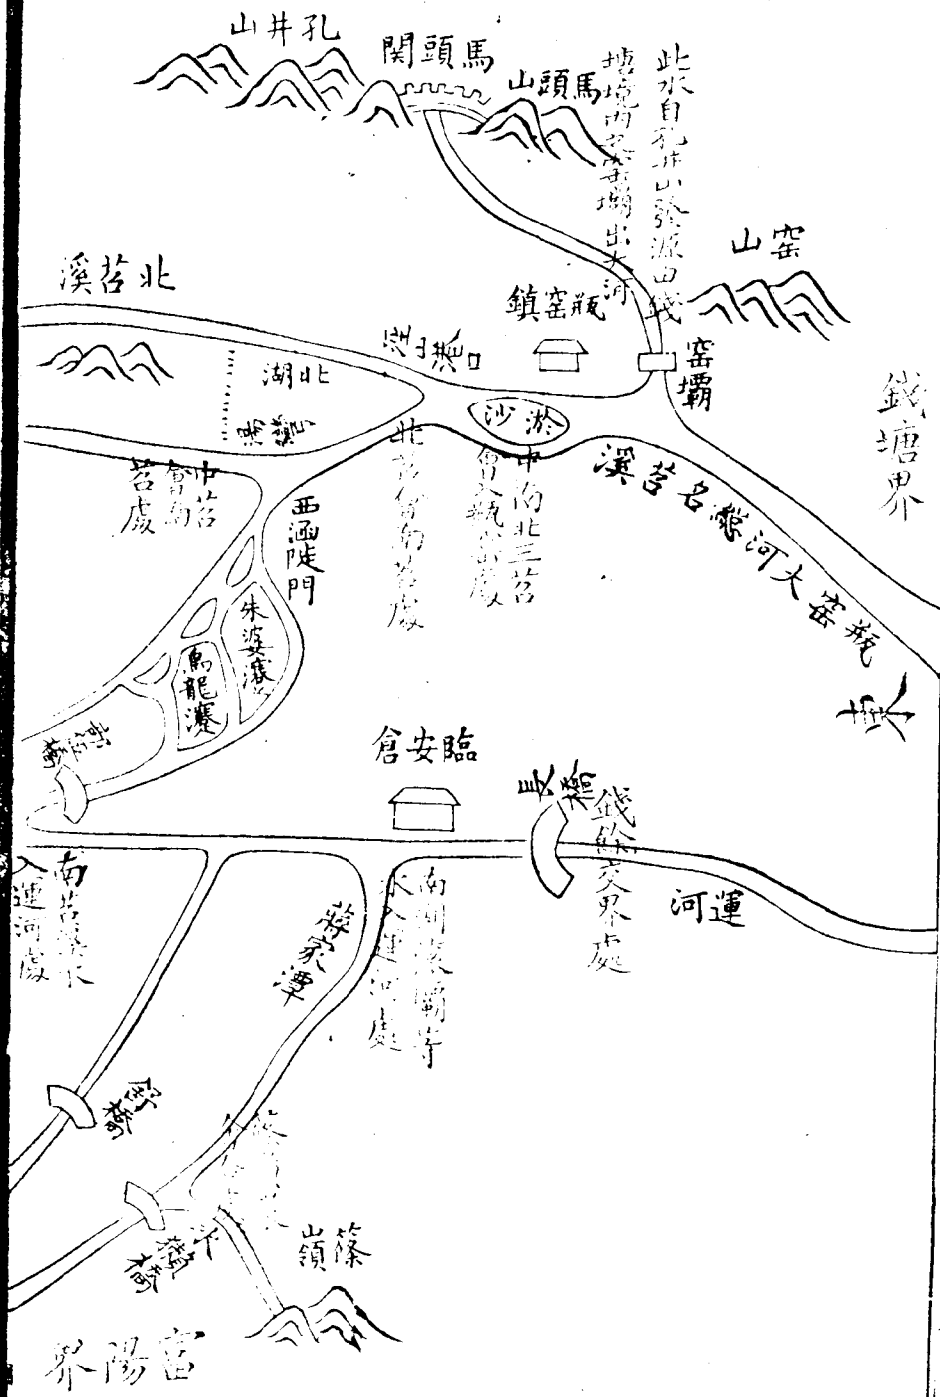 孔井山
馬頭関
馬頭山
此水自孔井山發源由錢
塘境內至窑壩出大河
窑山
北苕溪
瓶窑鎮
窑壩
錢塘界
北湖
淤沙
瓶窑大河總名苕溪
中苕
會南
苕處
西涵陡門
北苕會南苕處
中南北三苕
會入瓶窑處
東
朱婆瀼
烏龍瀼
臨安倉
長橋
錢餘交界處
運河
南苕溪水
入運河處
南湖滚壩等
水入運河處
蔣家潭
舒橋
橋
篠嶺
富陽界